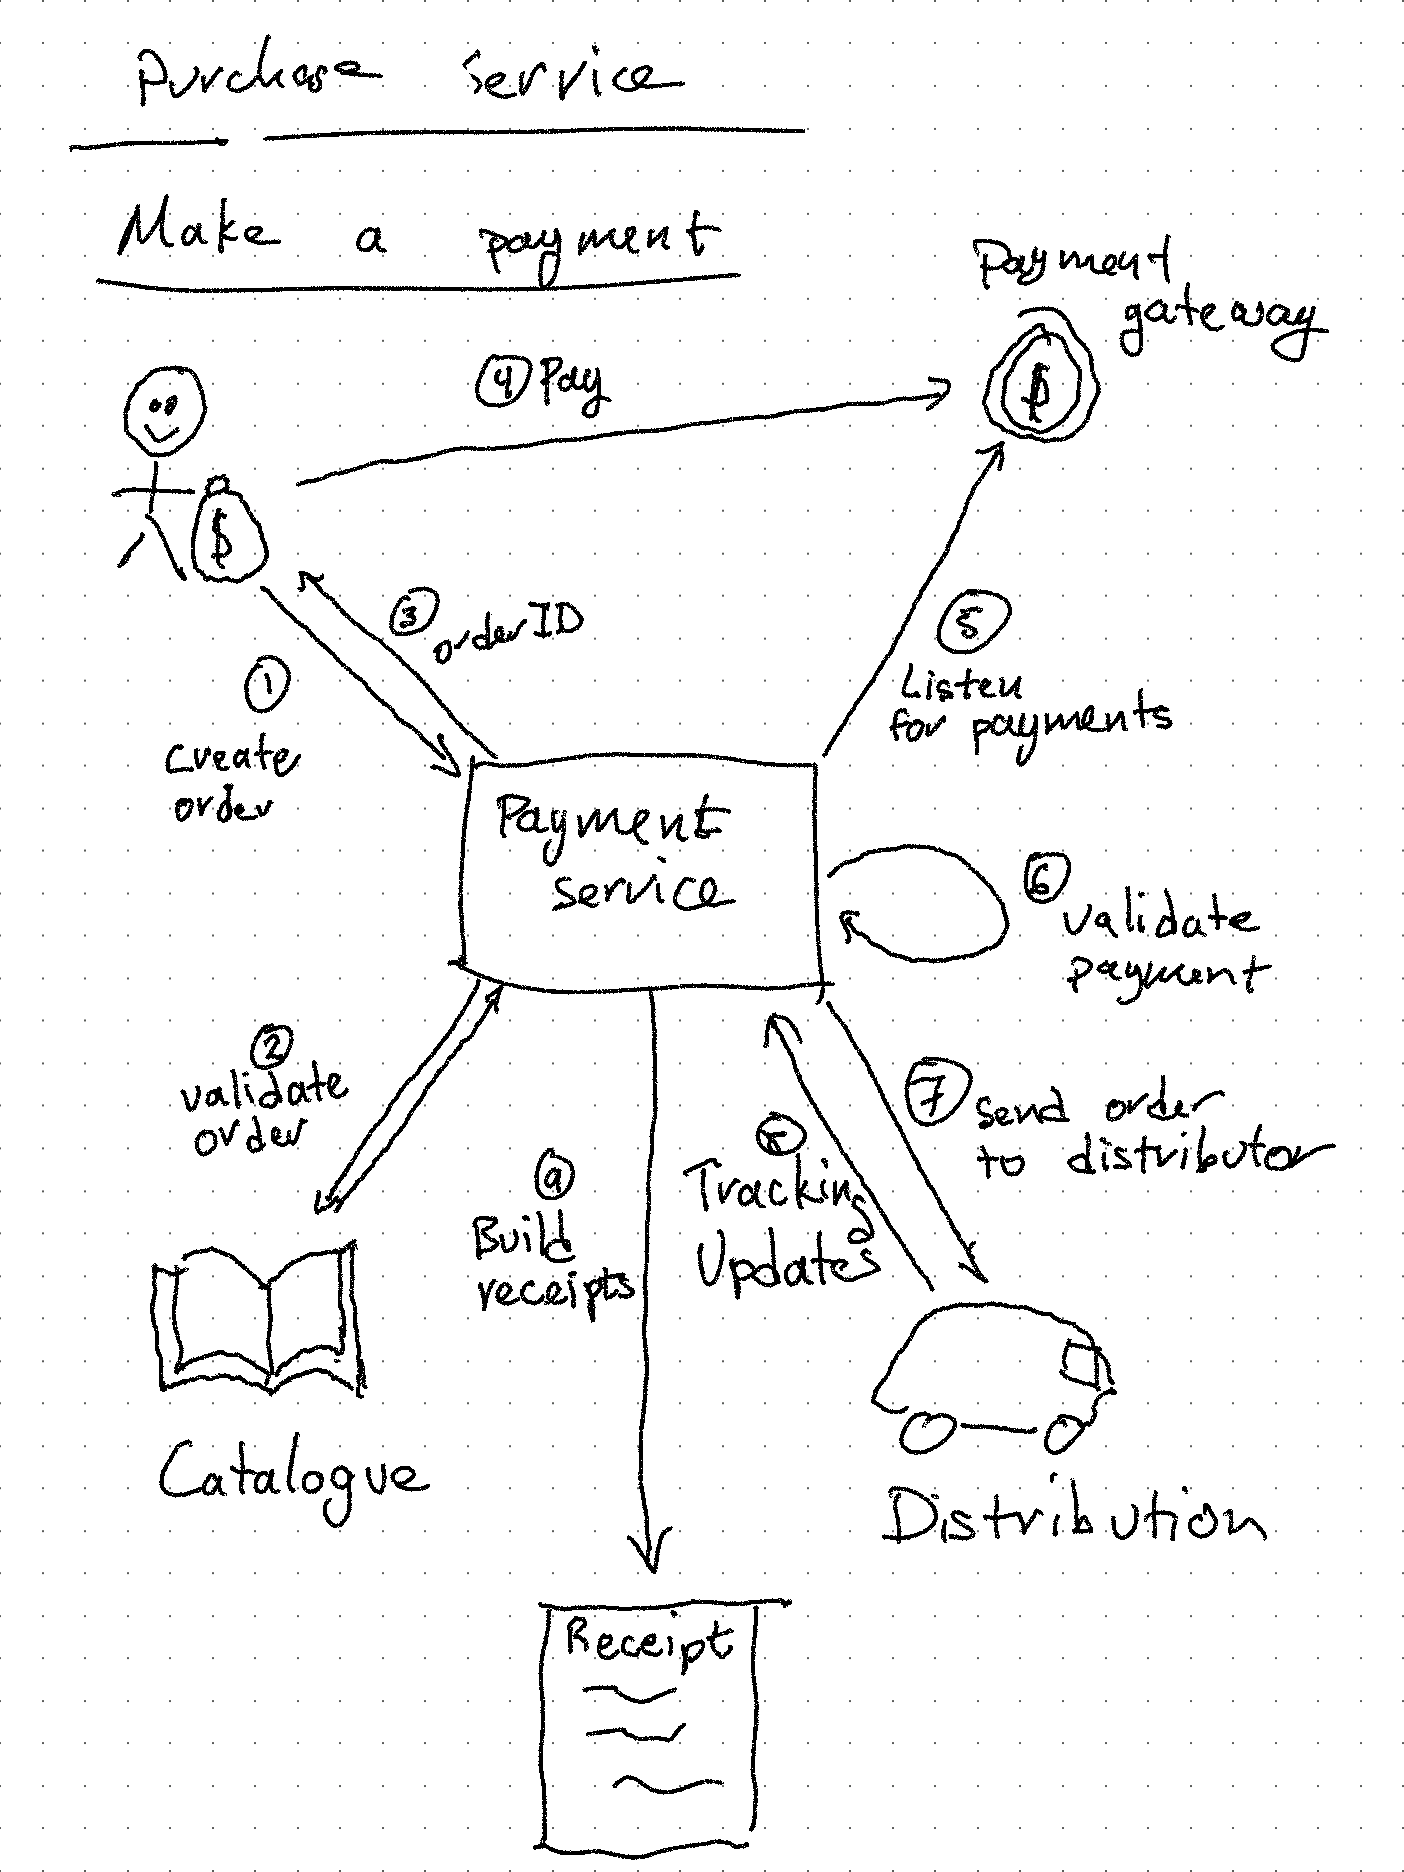 Purchase service
Make a payment
Payment
gateway
$
4 Pay
$
3
orderID
1
Create
order
5
Listen
for payments
Payment
service
6
validate
payment
2
validate
order
7 send order
to distributor
8
Tracking
Updates
9
Build
receipts
Catalogue
Distribution
Receipt